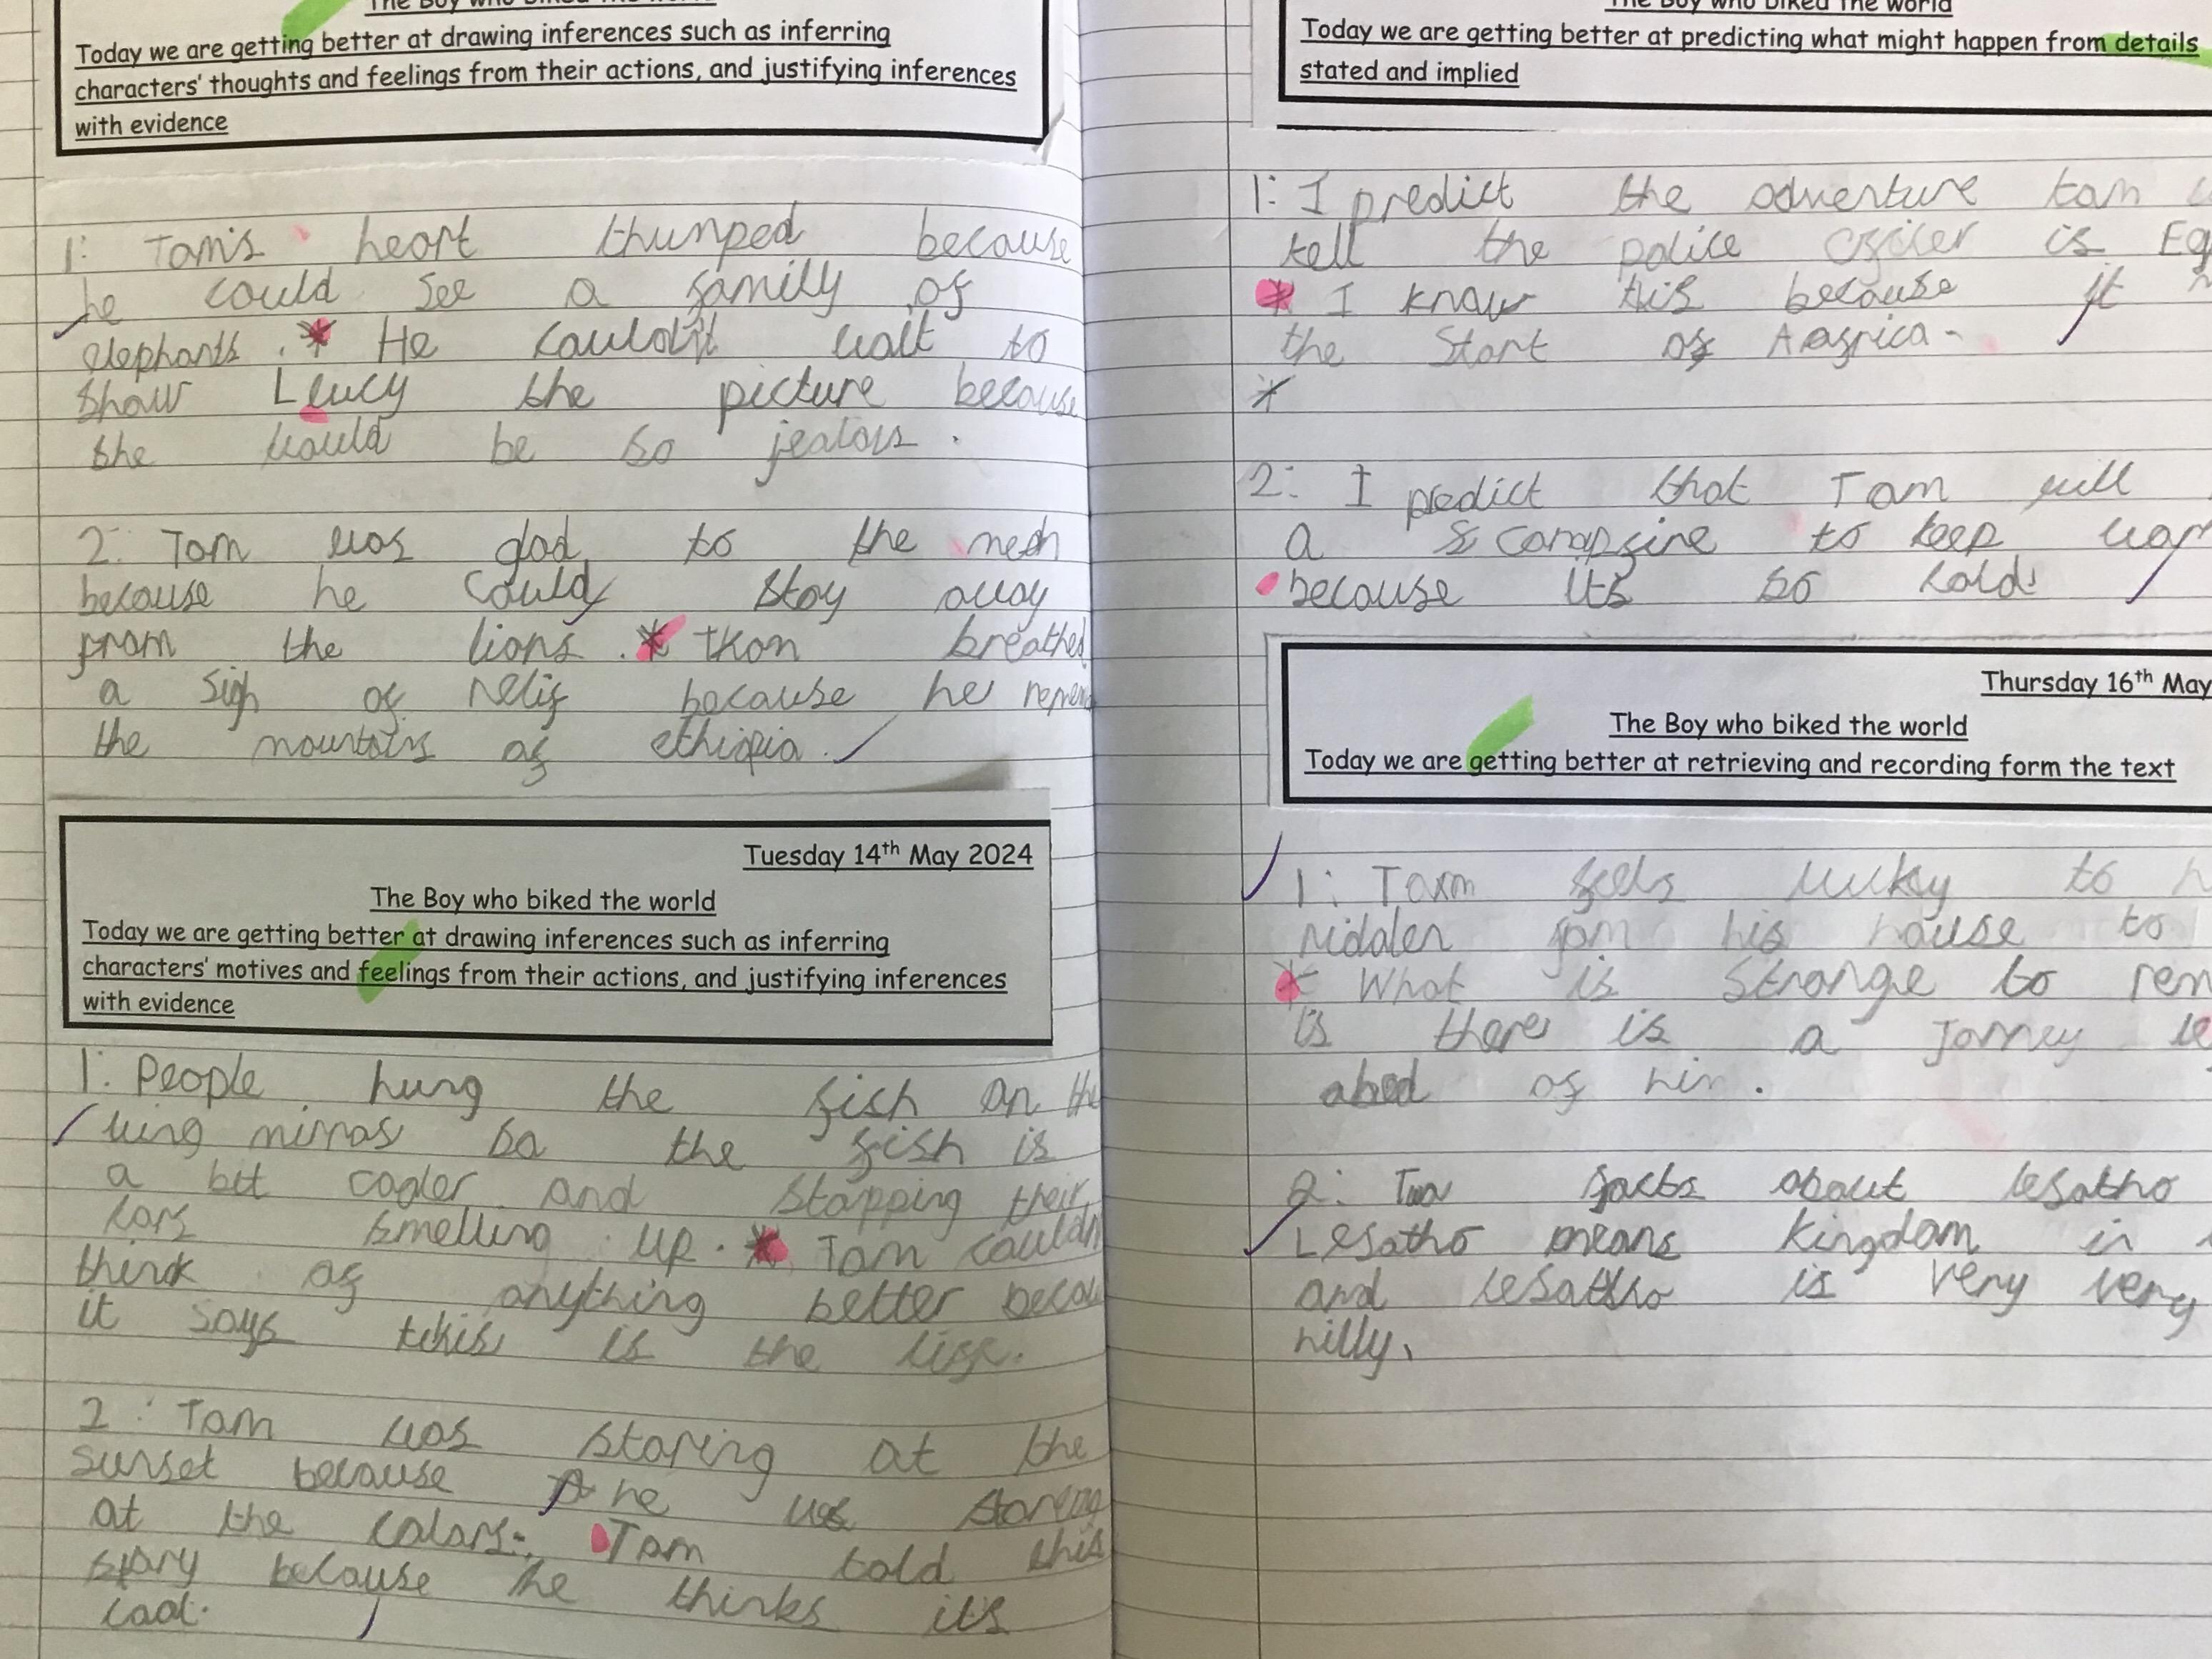 The Boy who biked the world
Today we are getting better at drawing inferences such as inferring
characters' thoughts and feelings from their actions, and justifying inferences
with evidence
1: Tom's heart thumped because
he could see a family of
elephants. * He couldn't wait to
show Lucy the picture because
she would be so jealous.
2: Tom was glad to the
because he could stay away
from the lions. * breathed
a sigh of relif because he
the mountains of ethiopia.
Tuesday 14th May 2024
The Boy who biked the world
Today we are getting better at drawing inferences such as inferring
characters' motives and feelings from their actions, and justifying inferences
with evidence
1: People hung the fish on the
wing mirros so the fish is
a bit cooler and stopping their
cars smelling up. * Tom couldn
think of anything better becau
it says this is the life.
2: Tom was staring at the
sunset because he was staring
at the colors. Tom told this
story because he thinks it's
cool.
The Boy who biked the world
Today we are getting better at predicting what might happen from details
stated and implied
1: I predict the adventure tom
tell the police officer is Eg
* I know this because it
the Start of Africa.
*
2: I predict that Tom will
a campfire to keep war
because its so cold
Thursday 16th May
The Boy who biked the world
Today we are getting better at retrieving and recording form the text
1: Tom feels lucky to h
ridden from his house to
* What is strange to rem
is there is a Jorney
ahed of him.
2: Two facts about lesotho
Lesotho means kingdom in
and lesotho is very very
hilly.